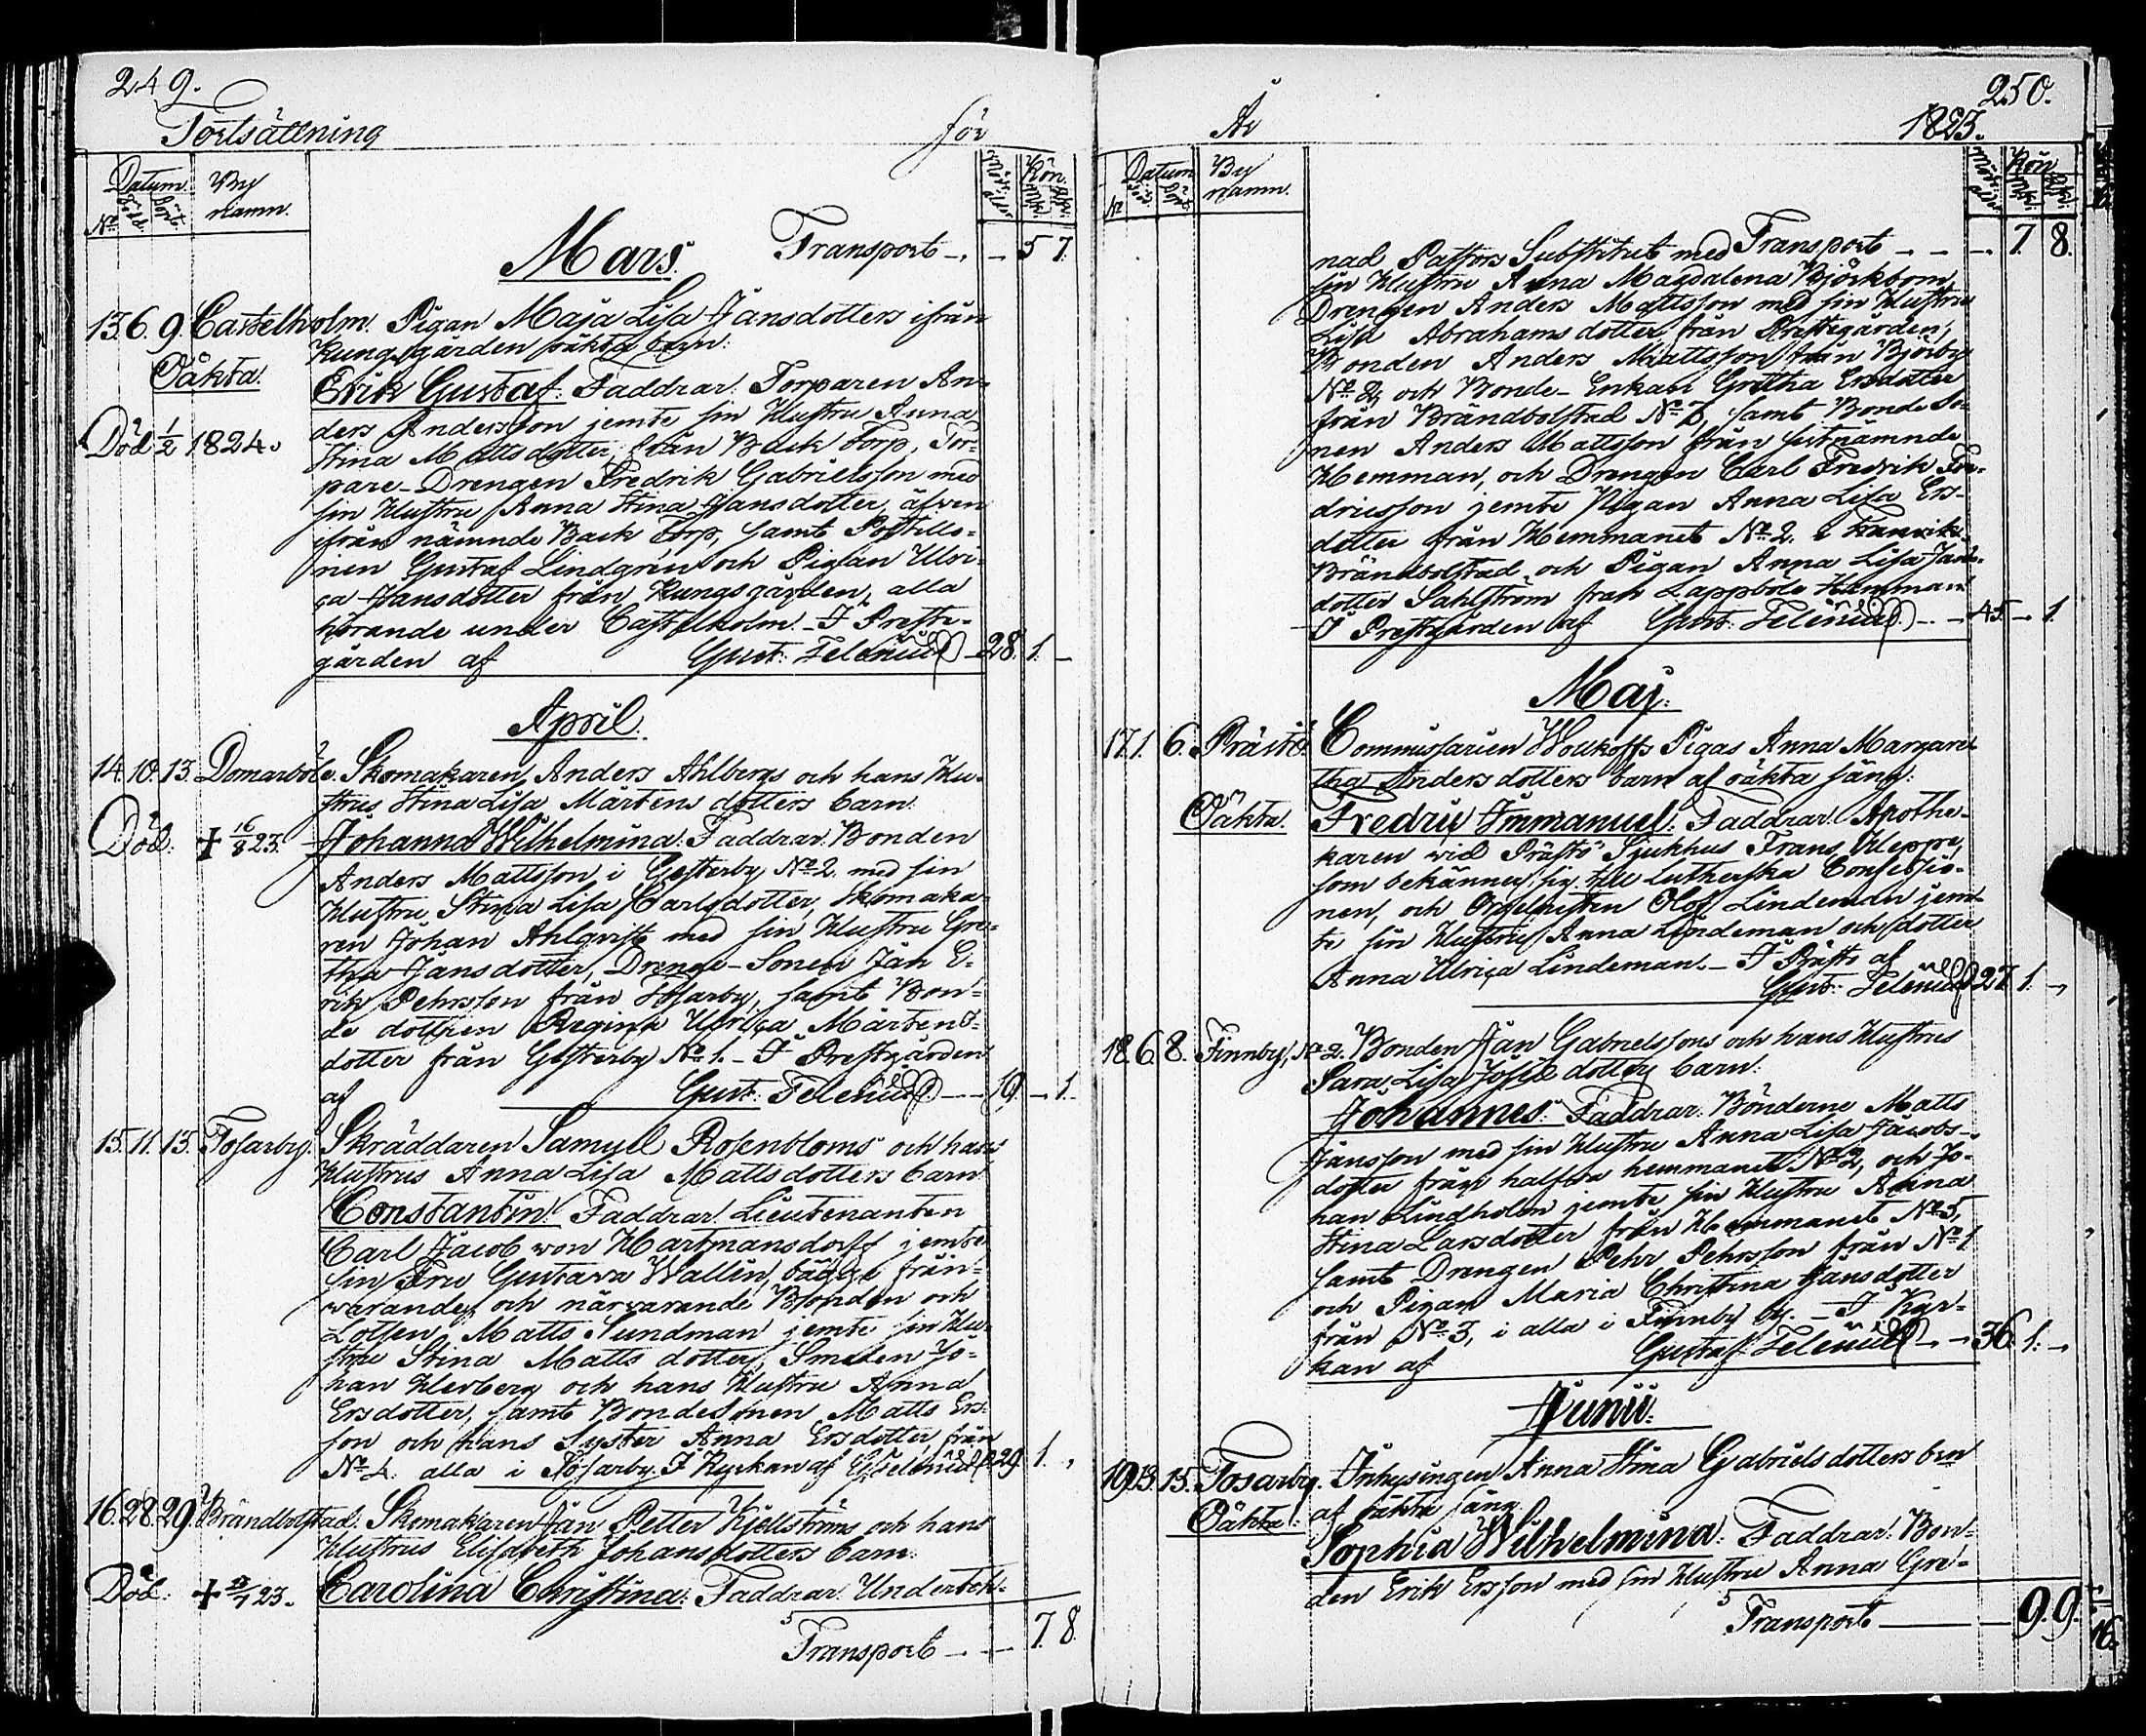 249.
Fortsättning för
No: Datum född. döpt. By namn. Mod: ålder Kön. Mk: Qk:
Mars. Transport - 5 7.
13. 6. 9. Castelholm. Pigan Maja Lisa Jansdotters ifrån
Kungsgården oäkta barn:
Oäkta.
Erik Gustaf. Faddrar. Torparen An-
ders Andersson jemte sin Hustru Anna
Död 1/2 1824.
Stina Mattsdotter, från Back Torp, Tor-
pare-Drengen Fredrik Gabrielsson med
sin Hustru Anna Stina Jansdotter, äfven
ifrån nämnde Back Torp, samt Postillo-
nen Gustaf Lindgrén och Pigan Ulri-
ca Jansdotter från Kungsgården, alla
hörande under Castelholm. - I Preste-
gården af Gust: Felenius - 28. 1. -
April.
14. 10. 13. Domarböle. Skomakaren Anders Ahlbergs och hans Hu-
strus Stina Lisa Mårtens dotters barn.
Död. + 16/8 23. Johanna Wilhelmina. Faddrar. Bonden
Anders Mattsson i Gesterby No 2. med sin
Hustru Stina Lisa Carlsdotter, Skomaka-
ren Johan Ahlqvist med sin Hustru Gre-
tha Jansdotter, Drenge-Sonen Jan E-
rik Pehrsson från Tosarby, samt Bon-
de dottren Regina Ulrica Mårtens-
dotter från Gesterby No 1. - I Prestgården
af Gust: Felenius - 19. - 1.
15. 11. 13. Tosarby. Skräddaren Samuel Rosenbloms och hans
Hustrus Anna Lisa Mattsdotters barn
Constantin. Faddrar. Lieutenanten
Carl Jacob von Hartmansdorff jemte
sin Fru Gustava Wallin, bägge från-
varande, och närvarande Bonden och
Lotsen Matts Sundman jemte sin Hu-
stru Stina Matts dotter, Smeden Jo-
han Herberg och hans Hustru Anna
Ersdotter, samt Bondesonen Matts Ers-
son och hans Syster Anna Ersdotter från
No 4. alla i Tosarby. I Kyrkan af G. Felenius 29. 1.
16. 28. 29. Brändbolstad. Skomakaren Jan Petter Kjellströms och hans
Hustrus Elisabeth Johansdotters barn.
Död. + /7 23. Carolina Christina. Faddrar. Underteck-
Transport - 7. 8.
250.
År 1823.
No Datum född. döpt. By namn. Mod: ålder Kön Mk: Qk:
nad Pastors Substitut med Transport - - 7. 8.
sin Hustru Anna Magdalena Björkbom,
Drengen Anders Mattsson med sin Hustru
Lisa Abrahams dotter från Prestegården,
Bonden Anders Mattsson från Björby
No 2, och Bonde-Enkan Gretha Ersdotter
från Brändbolstad No , samt Bonde So-
nen Anders Mattsson från sistnämnde
Hemman, och Drengen Carl Fredrik Fre-
dricsson jemte Pigan Anna Lisa Ers-
dotter från Hemmanet No 2. i
Brändbolstad, och Pigan Anna Lisa Jans-
dotter Sahlström från Lappböle Hemman
I Prestgården af Gust: Felenius - 45. - 1.
Maj.
17. 1. 6. Prästö. Commissarien Wolkoffs Pigas Anna Margare-
tha Anders dotters barn af oäkta säng:
Oäkta. Fredric Immanuel. Faddrar. Apothe-
karen vid Prästö Sjukhus Frans Heppe,
som bekänner sig till Lutherska Confessio-
nen, och Organisten Olof Lindeman jem-
te sin Hustru Anna Lindeman och dotter
Anna Ulrica Lindeman. - I Prästö af
Gust: Felenius 27. 1. -
18. 6. 8. Finnby, No 2. Bonden Jan Gabrielssons och hans Hustrus
Sara Lisa Josefs dotters barn.
Johannes. Faddrar. Bönderne Matts
Jansson med sin Hustru Anna Lisa Jacobs-
dotter från halfva hemmanet No 2, och Jo-
han Lindholm jemte sin Hustru Anna
Stina Larsdotter från Hemmanet No 5,
samt Drengen Pehr Pehrsson från No 1
och Pigan Maria Christina Jansdotter
från No 3, i alla i Finnby by. - I Kyr-
kan af Gustaf Felenius - 36. 1. -
Junii.
19. 13. 15. Tosarby. Inhysingen Anna Stina Gabriels dotters brn
Oäkta. af oäkta säng.
Sophia Wilhelmina. Faddrar. Bon-
den Erik Ersson med sin Hustru Anna Gre-
Transport - 9. 9.
16.